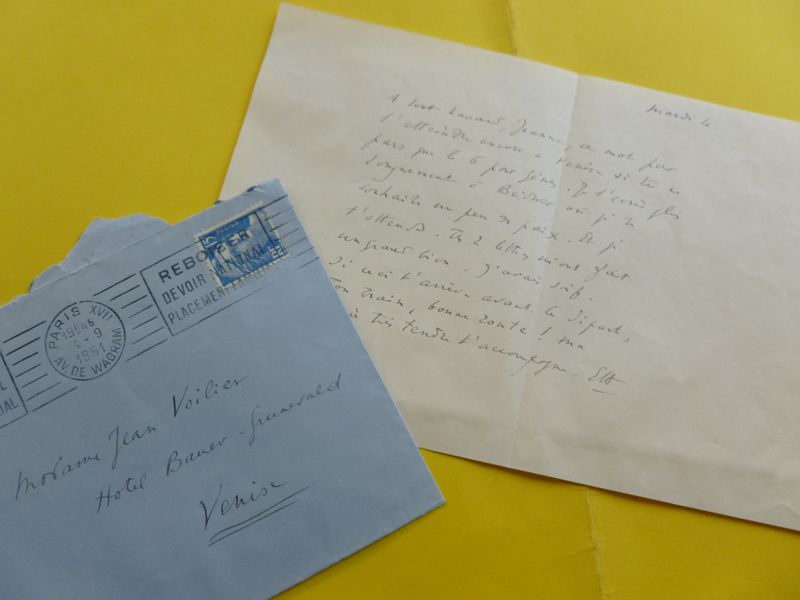 mardi 4.
A tout hasard, Jeanne, ce mot pour
t'atteindre encore à Venise si tu ne
pars que le 6 pour Gênes. Je t'écris plus
longuement à Beduer où je te
souhaite un peu de paix. Et je
t'attends. Tes 2 lettres m'ont fait
un grand bien. J'avais soif.
Si ceci t'arrive avant le départ,
bon train, bonne route ! ma
très tendre t'accompagne.
REBOISER
DEVOIR NATIONAL
PLACEMENT
PARIS XVII
19H45
4-9
1951
AV. DE WAGRAM
Madame Jean Voilier
Hotel Bauer-Grunwald
Venise